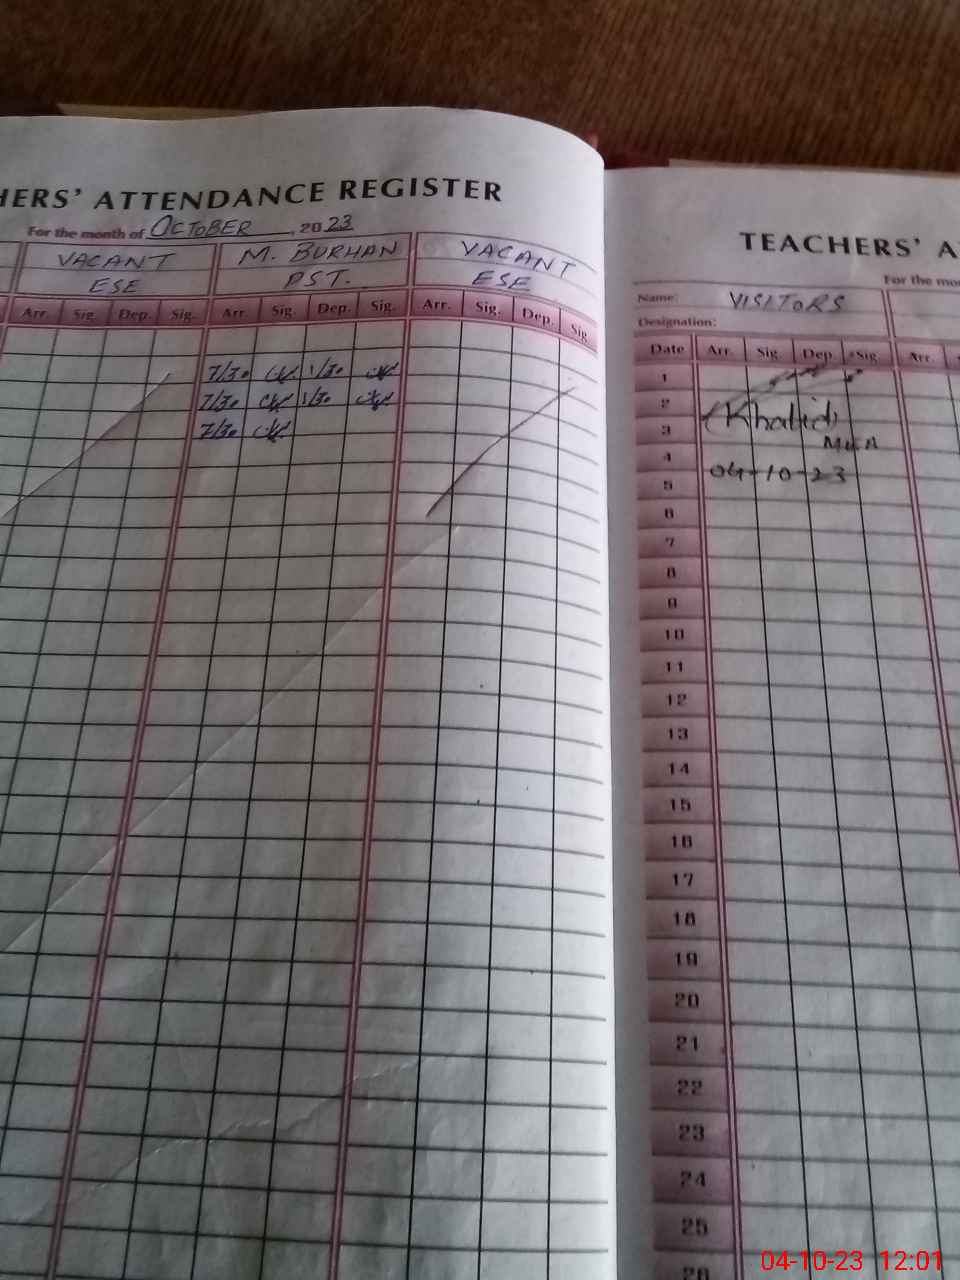 HERS' ATTENDANCE REGISTER
For the month of OCTOBER, 2023
VACANT M. BURHAN VACANT
ESE PST. ESE
Arr. Sig. Dep. Sig. Arr. Sig. Dep. Sig. Arr. Sig. Dep. Sig.
7/30 1/30
7/30 1/30
7/30
TEACHERS' A
For the mo
Name: VISITORS
Designation:
Date Arr. Sig. Dep. Sig. Arr.
1
2
(Khalid)
3
MEA
4
04-10-23
5
6
7
8
9
10
11
12
13
14
15
16
17
18
19
20
21
22
23
24
25
26
04-10-23 12:01